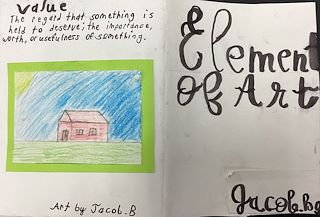 Value
The regard that something is
held to deserve; the importance,
worth, or usefulness of something.
Art by Jacob.B
Element
Of Art
Jacob.Ba